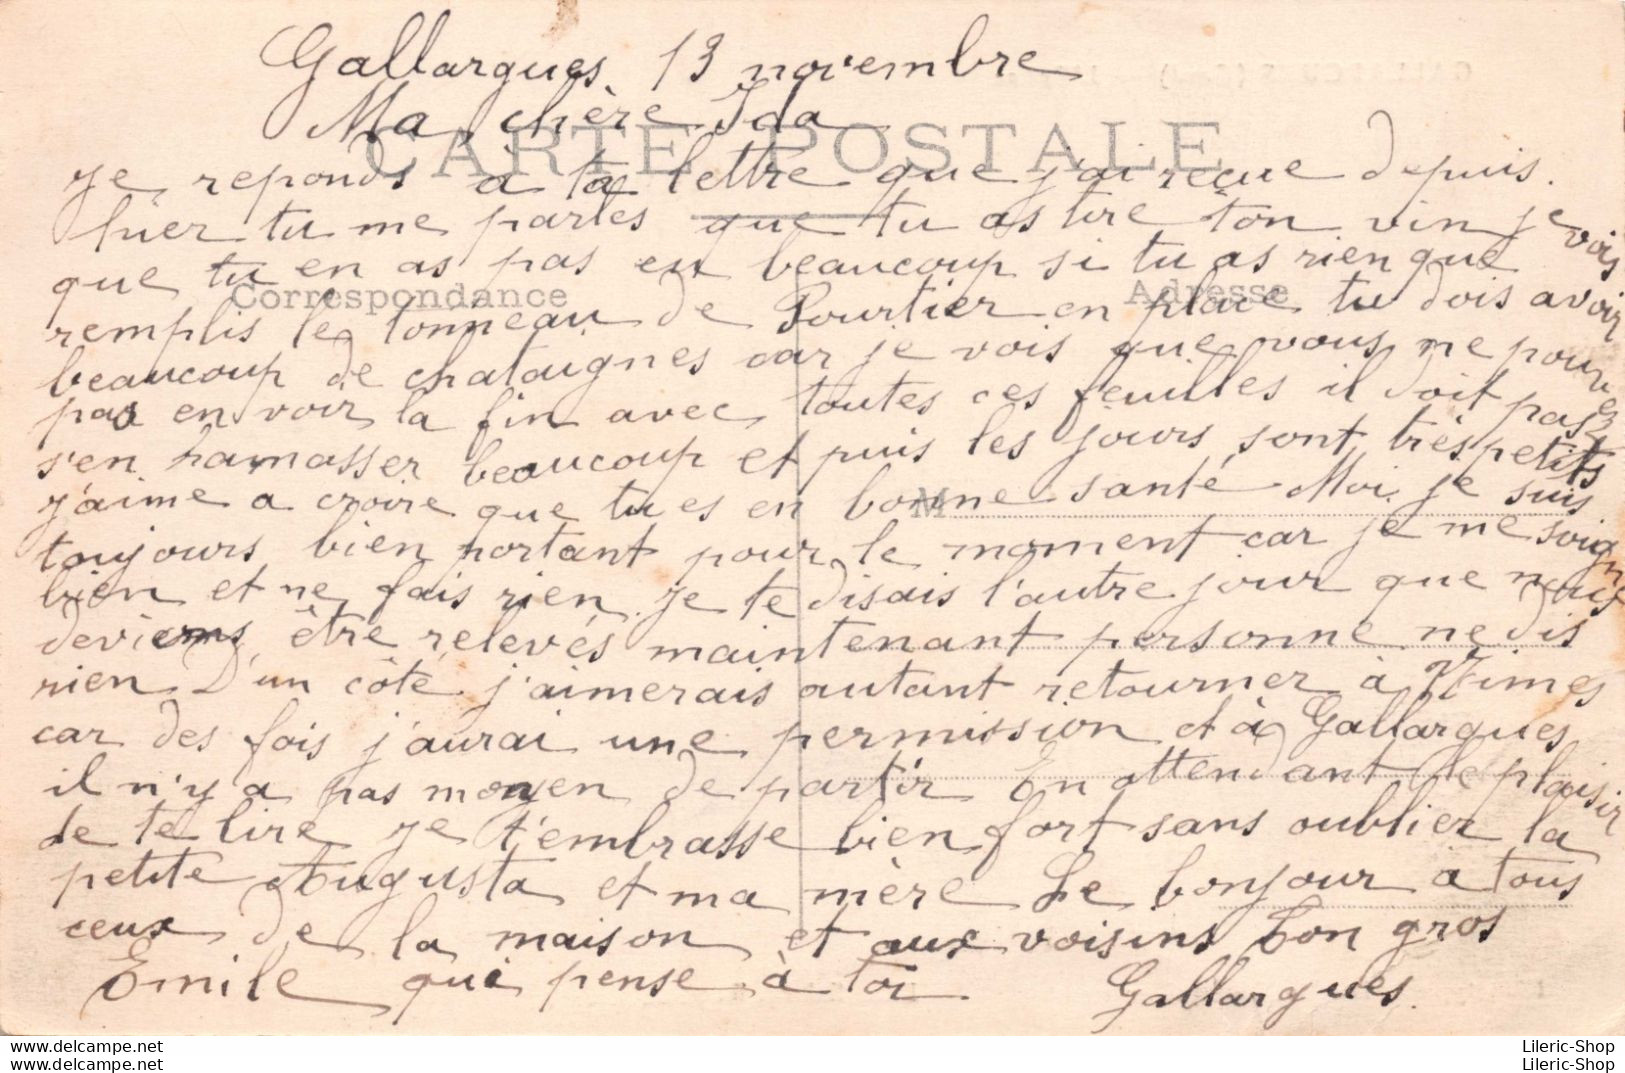 Gallargues 13 novembre
Ma chère Ida
CARTE POSTALE
Je reponds à ta lettre que j'ai reçue depuis
hier tu me parles que tu as tiré ton vin je vois
que tu en as pas eu beaucoup si tu as rien que
Correspondance
Adresse
remplis le tonneau de Pourtier en place tu dois avoir
beaucoup de chataignes car je vois que vous ne pouvez
pas en voir la fin avec toutes ces feuilles il doit pas
s'en ramasser beaucoup et puis les jours sont très petits
j'aime a croire que tu es en bonne santé Moi je suis
M
toujours bien portant pour le moment car je me soigne
bien et ne fais rien. Je te disais l'autre jour que nous
devions être relevés maintenant personne ne dis
rien D'un côté j'aimerais autant retourner à Nimes
car des fois j'aurai une permission et à Gallargues
il n'y a pas moyen de partir En attendant le plaisir
de te lire je t'embrasse bien fort sans oublier la
petite Augusta et ma mère Le bonjour a tous
ceux de la maison et aux voisins Ton gros
Emile qui pense à toi Gallargues.
www.delcampe.net
www.delcampe.net
Lileric-Shop
Lileric-Shop